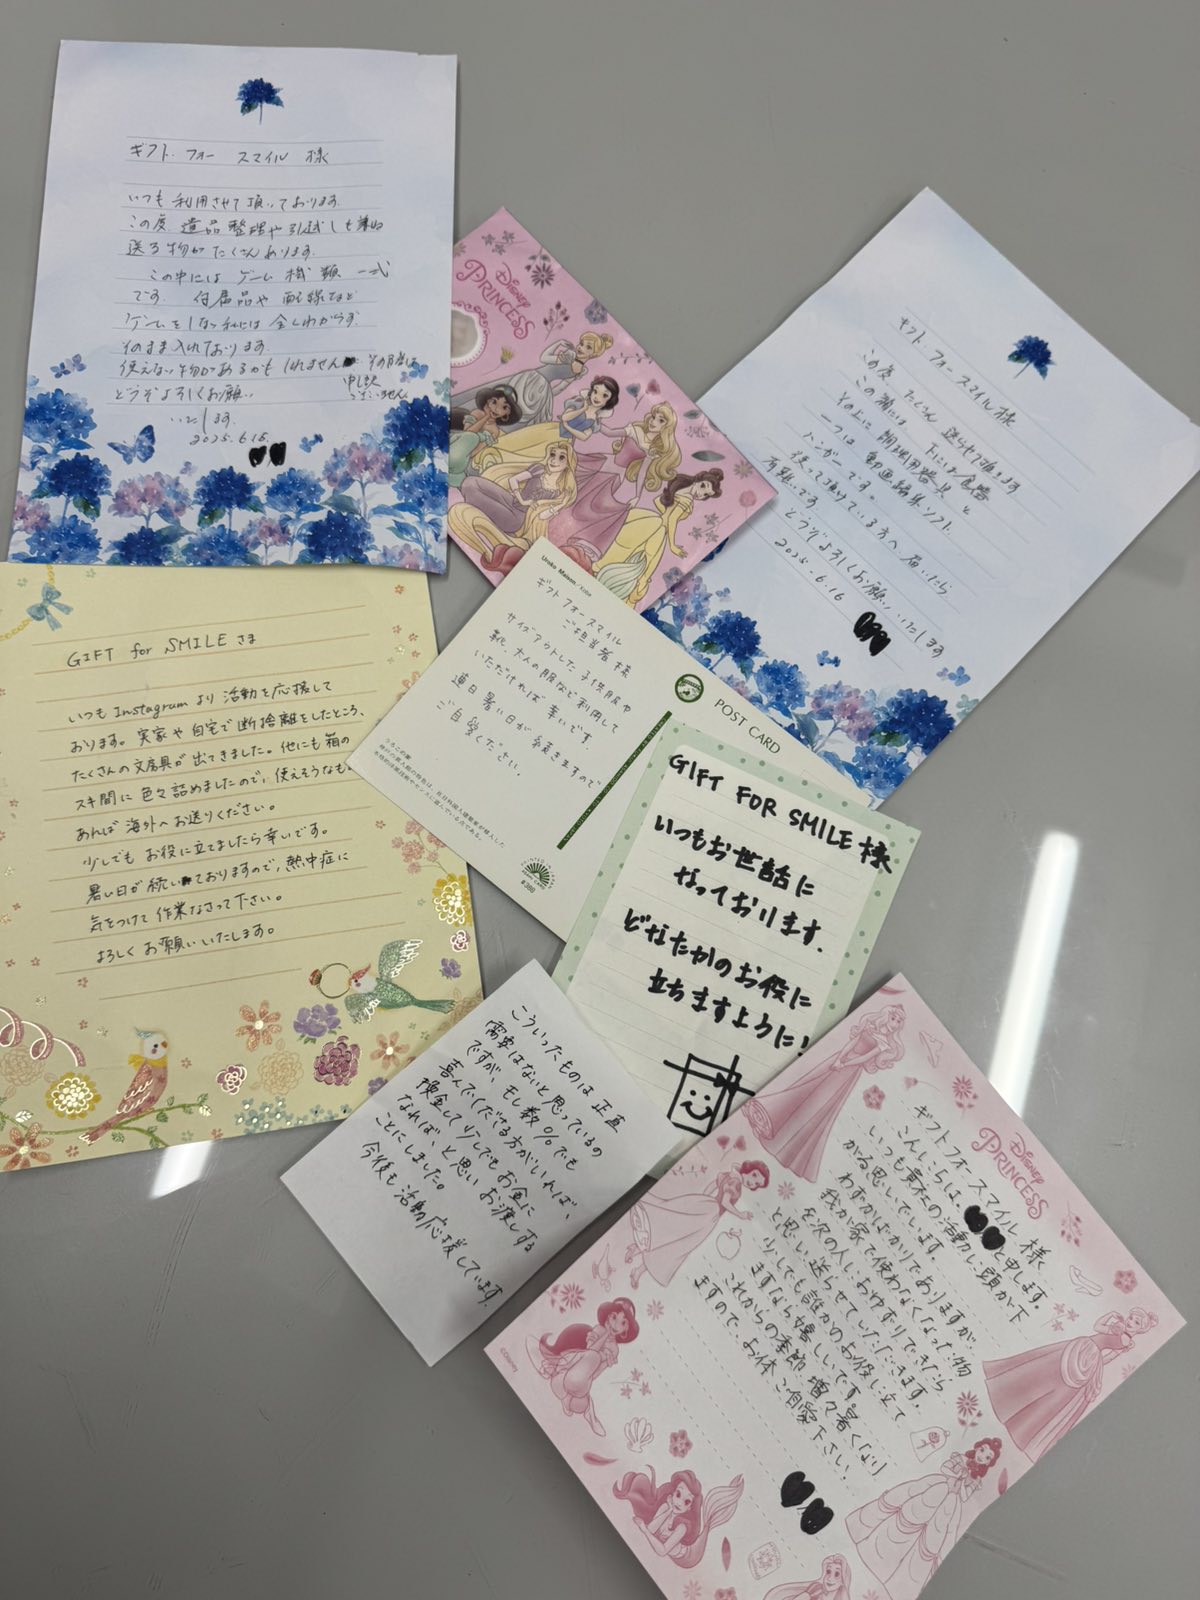 ギフト フォー スマイル 様
いつも利用させて頂いております。
この度 遺品整理や引越しも兼ね
送る物がたくさんあります。
この中には ゲーム機類 一式
です。 付属品や 配線など
ゲームをしない私には 全くわからず
そのまま入れております。
使えない物があるかもしれません その時は
申し訳
ございません
どうぞよろしくお願い
いたします。
2025.6.18.
Disney
PRINCESS
ギフト.フォースマイル様
この度 たくさん 送らせて頂きます
この箱には 下には食器
その上に 調理用器具 と
一つは 動画編集ソフト
ハンガーです。
使って頂けている方へ 届いたら
有難いです。
どうぞよろしくお願いいたします
2025.6.16
GIFT for SMILE さま
いつも Instagram より 活動を応援して
おります。実家や自宅で断捨離をしたところ、
たくさんの文房具が出てきました。他にも箱の
スキ間に色々詰めましたので、使えそうなも
あれば 海外へお送りください。
少しでも お役に立てましたら幸いです。
暑い日が続いておりますので、熱中症に
気をつけて作業なさって下さい。
よろしくお願いいたします。
Uroko Maison / Kobe
ギフト フォースマイル
ご担当者 様
サイズアウトした子供服や
靴、大人の服などご利用して
いただければ 幸いです。
連日 暑い日が続きますので
ご自愛ください。
POST CARD
うろこの家
#380
GIFT FOR SMILE 様
いつもお世話に
なっております.
どなたかのお役に
立ちますように!
こういったものは正直
需要はないと思っているの
ですが、もし数%でも
喜んでくださる方がいれば、
換金して少しでもお金に
なれば、と思いお渡しする
ことにしました。
今後も活動応援しています.
Disney
PRINCESS
ギフトフォースマイル 様
こんにちは。 と申します。
いつも貴社の活動に頭が下
がる思いでいます。
わずかばかりでありますが
我が家で使わなくなった物
を次の人におゆずりできたら
と思い送らせていただきます。
少しでも誰かのお役に立て
ますなら嬉しいです。
これからの季節 増々暑くなり
ますので、お体ご自愛下さい。
©DISNEY